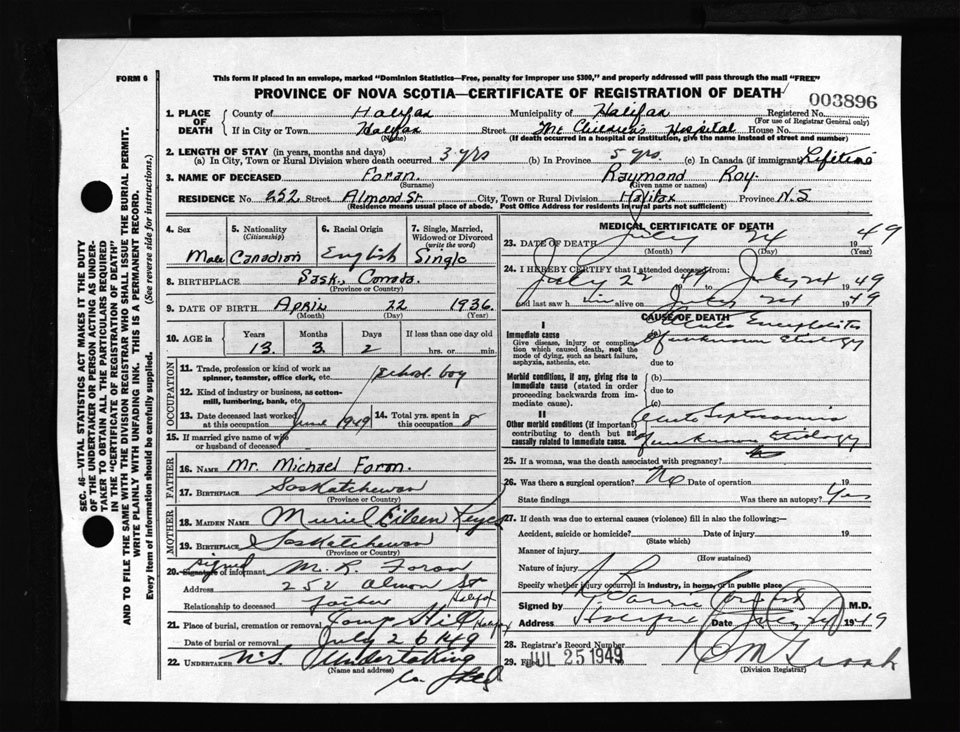 FORM 6
This form if placed in an envelope, marked "Dominion Statistics—Free, penalty for improper use $300," and properly addressed will pass through the mail "FREE"
PROVINCE OF NOVA SCOTIA—CERTIFICATE OF REGISTRATION OF DEATH
003896
1. PLACE OF DEATH
County of Halifax Municipality of Halifax Registered No.
(For use of Registrar General only)
If in City or Town Halifax Street The Children's Hospital House No.
(Name) (If death occurred in a hospital or institution, give the name instead of street and number)
2. LENGTH OF STAY (in years, months and days)
(a) In City, Town or Rural Division where death occurred 3 yrs (b) In Province 5 yrs. (c) In Canada (if immigrant) Lifetime
3. NAME OF DECEASED Foran. Raymond Roy.
(Surname) (Given name or names)
RESIDENCE No 252 Street Almond St. City, Town or Rural Division Halifax Province N.S
(Residence means usual place of abode. Post Office Address for residents in rural parts not sufficient)
4. Sex Male
5. Nationality (Citizenship) Canadian
6. Racial Origin English
7. Single, Married, Widowed or Divorced (write the word) Single
8. BIRTHPLACE Sask, Canada.
(Province or Country)
9. DATE OF BIRTH April 22 1936
(Month) (Day) (Year)
10. AGE in Years Months Days If less than one day old
13 3 2 hrs. or min.
OCCUPATION
11. Trade, profession or kind of work as spinner, teamster, office clerk, etc. School boy
12. Kind of industry or business, as cotton-mill, lumbering, bank, etc.
13. Date deceased last worked at this occupation June 1949
14. Total yrs. spent in this occupation 8
15. If married give name of wife or husband of deceased
FATHER
16. NAME Mr. Michael Foran.
17. BIRTHPLACE Saskatchewan
(Province or Country)
MOTHER
18. MAIDEN NAME Muriel Eileen Keyes
19. BIRTHPLACE Saskatchewan
(Province or Country)
signed
20. Signature of informant M. R. Foran
Address 252 Almon St Halifax
Relationship to deceased father
21. Place of burial, cremation or removal Camp Hill Halifax
Date of burial or removal July 26 1949
22. UNDERTAKER N.S. Undertaking
(Name and address)
Co. Ltd
MEDICAL CERTIFICATE OF DEATH
23. DATE OF DEATH July 24 1949
(Month) (Day) (Year)
24. I HEREBY CERTIFY that I attended deceased from:
July 22 1949 to July 24 1949
and last saw him alive on July 24 1949
CAUSE OF DEATH
I
Immediate cause
Give disease, injury or complication which caused death, not the mode of dying, such as heart failure, asphyxia, asthenia, etc.
(a) Acute Encephalitis
of unknown etiology
due to
Morbid conditions, if any, giving rise to immediate cause (stated in order proceeding backwards from immediate cause).
(b)
due to
(c)
II
Other morbid conditions (if important) contributing to death but not causally related to immediate cause.
Acute Septicaemia
of unknown Etiology
25. If a woman, was the death associated with pregnancy? no
26. Was there a surgical operation? No Date of operation 19
State findings Was there an autopsy? Yes
27. If death was due to external causes (violence) fill in also the following:—
Accident, suicide or homicide? Date of injury 19
(State which)
Manner of injury
(How sustained)
Nature of injury
Specify whether injury occurred in industry, in home, or in public place
Signed by M.D.
Address Halifax Date July 24 1949
28. Registrar's Record Number
29. Filed JUL 25 1949
(Division Registrar)
SEC. 46—VITAL STATISTICS ACT MAKES IT THE DUTY
OF THE UNDERTAKER OR PERSON ACTING AS UNDER-
TAKER TO OBTAIN ALL THE PARTICULARS REQUIRED
IN THE "CERTIFICATE OF REGISTRATION OF DEATH"
AND TO FILE THE SAME WITH THE DIVISION REGISTRAR WHO SHALL ISSUE THE BURIAL PERMIT.
WRITE PLAINLY WITH UNFADING INK. THIS IS A PERMANENT RECORD.
Every item of information should be carefully supplied. (See reverse side for instructions.)